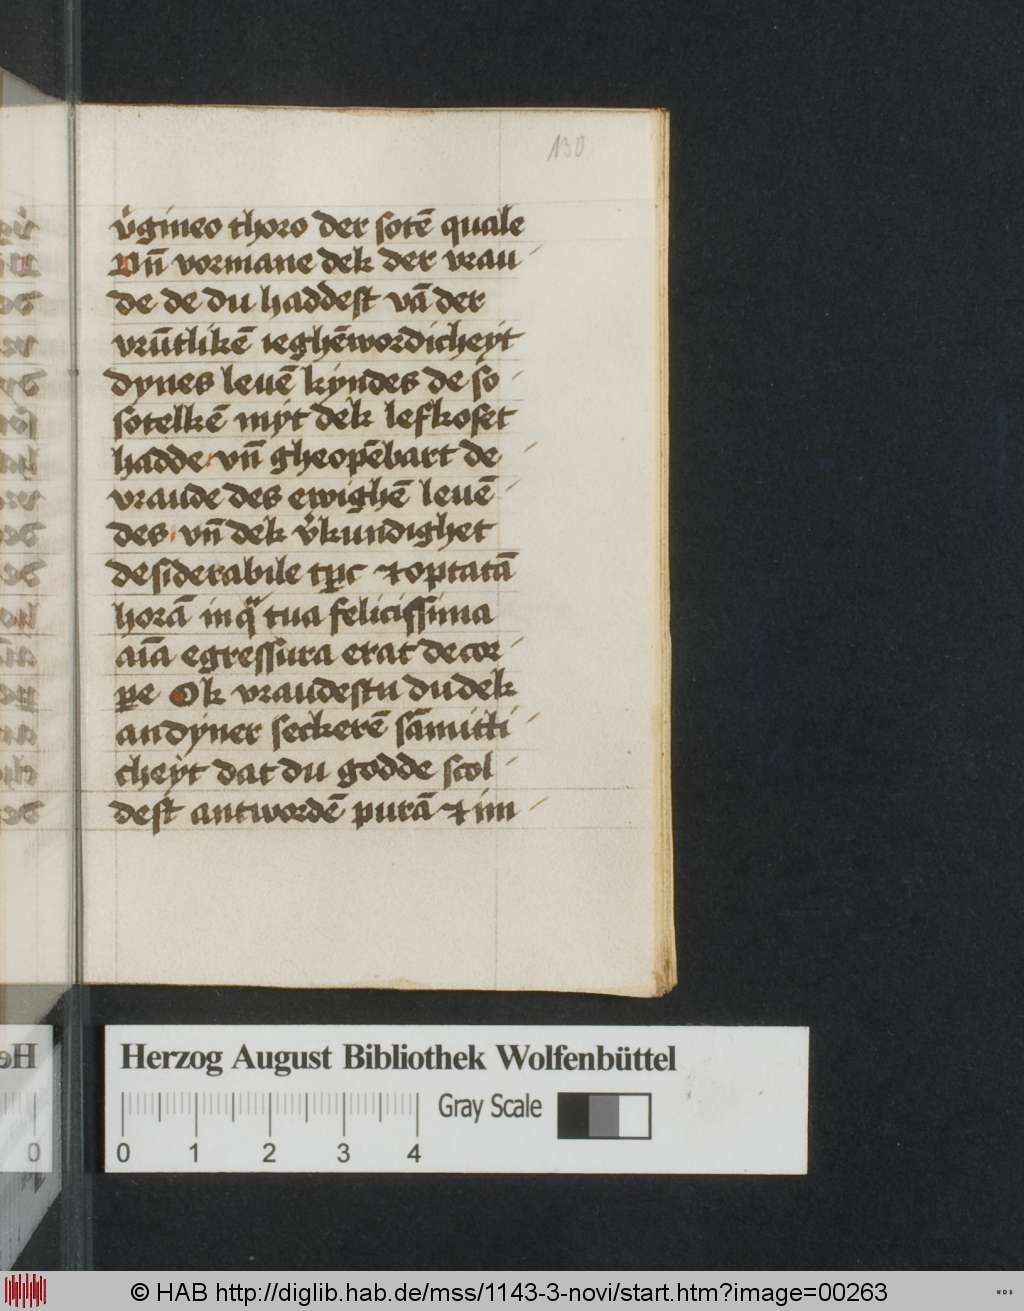 130
v̾gineo thoro der sotē quale
Vn̄ vormane dek der vrau
de de du haddest vā der
vrūtlikē ieghēwordicheyt
dynes leuē kyndes de so
sotelkē myt dek lefkoset
hadde vn̄ gheopēbart de
vraude des ewighē leuē
des vn̄ dek v̾kundighet
desiderabile tp̄c ⁊ optatā
horā in qͣ tua felicissima
aīa egressura erat de cor
pe Ok vraudestu du dek
an dyner seckerē sāmitti
cheyt dat du godde scol
dest antwordē purā ⁊ im
Herzog August Bibliothek Wolfenbüttel
Gray Scale
0 1 2 3 4
© HAB http://diglib.hab.de/mss/1143-3-novi/start.htm?image=00263